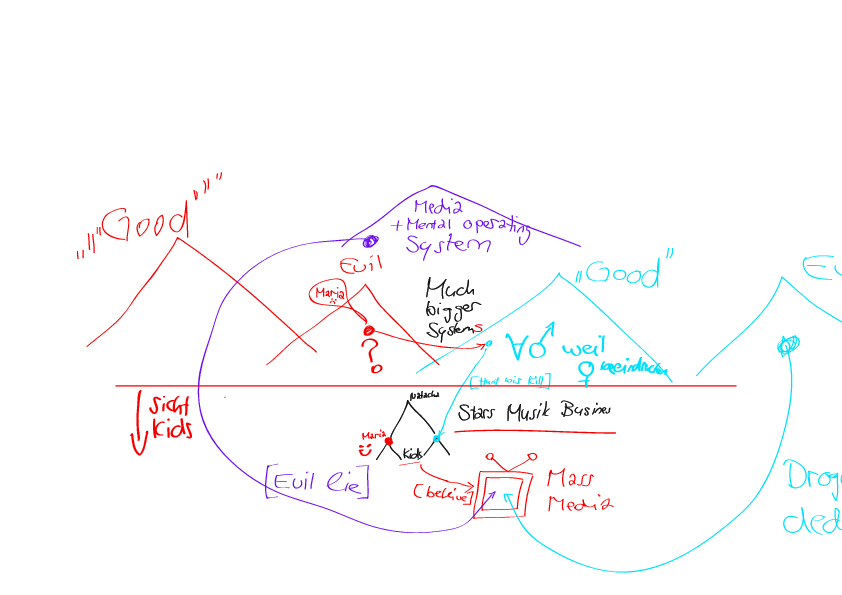 „„"Good""""
Media
+ Mental operating
System
Evil
Maria
Much
bigger
Systems
?
„Good"
Ev
∀♂ weil
♀ beeindrucken
[Hunt bis Kill]
Sicht
Kids
Natacha
Maria
Kids
Stars Musik Busines
[Evil lie]
[believe]
Mass
Media
Drog
ded